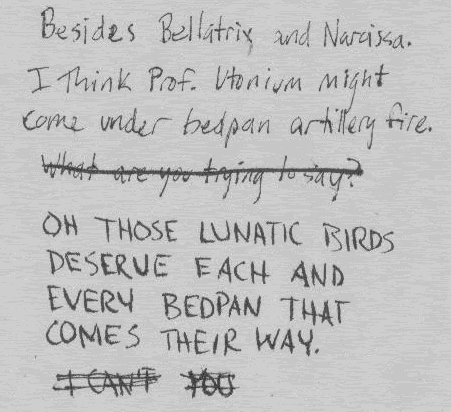 Besides Bellatrix and Narcissa.
I Think Prof. Utonium might
come under bedpan artillery fire.
What are you trying to say?
OH THOSE LUNATIC BIRDS
DESERVE EACH AND
EVERY BEDPAN THAT
COMES THEIR WAY.
I CAN'T YOU